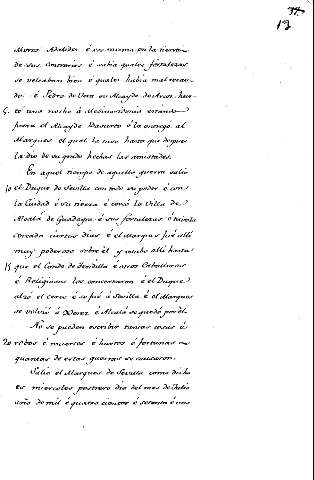 37.
19
Moros Adalides é ver mesma en la tierra
de sus Contrarios é sabia quales fortalezas
se velaban bien é quales habia mal recau-
do. é Pedro de Vera su Alcayde de Arcos hur-
5. tó una noche á Medinasidonia estando
fuera el Alcayde Basurto é la entregó al
Marques el qual la tuvo hasta que despues
la dió de su grado hechas las amistades.
En aquel tiempo de aquella guerra salió
10 el Duque de Sevilla con todo su poder é con
la Ciudad é su tierra é cercó la Villa de
Alcalá de Guadayra é sus fortalezas é túvola
cercada ciertos dias é el Marques fué allí
muy poderoso sobre él y estubo allí hasta
15 que el Conde de Tendilla é otros Caballeros
é Religiosos los concertaron é el Duque
alzó el cerco é se fué á Sevilla é el Marques
se volvió á Xerez é Alcalá se quedó por él.
No se pueden escribir tantas cosas é
20 robos é muertes é hurtos é fortunas
quantas de estas guerras se causaron.
Salió el Marques de Sevilla como dicho
es miercoles postrero dia del mes de Julio
año de mil é quatro cientos é setenta é uno